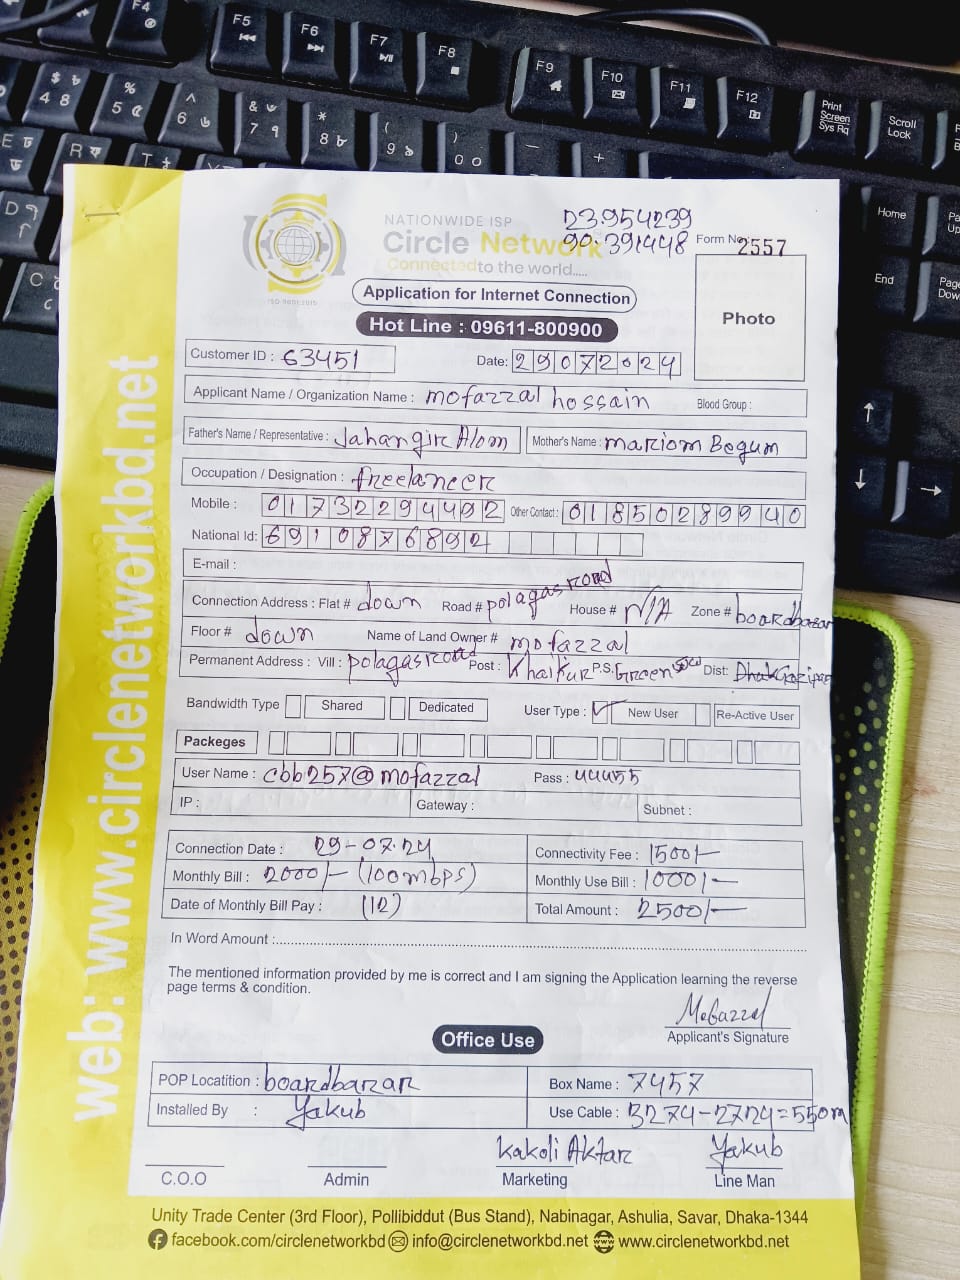 F4 F5 F6 F7 F8 F9 F10 F11 F12 Print Screen Sys Rq Scroll Lock
$ ৳ 4 8 % 5 ^ 6 ৬ & 7 ৭ * 8 ৮ ( 9 ৯ ) 0 ০ — +
E R T
D Home End
C
NATIONWIDE ISP
Circle Network
Connected to the world.....
ISO 9001:2015
23954239
90.391448
Form No: 2557
Application for Internet Connection
Hot Line : 09611-800900
Photo
Customer ID : 63451 Date: 29072024
Applicant Name / Organization Name : mofazzal hossain Blood Group :
Father's Name / Representative : Jahangir Alom Mother's Name : mariom Begum
Occupation / Designation : freelancer
Mobile : 01732294492 Other Contact : 01850289940
National Id: 6910876892
E-mail :
Connection Address : Flat # down Road # polagasroad House # N/A Zone # boardbazar
Floor # down Name of Land Owner # mofazzal
Permanent Address : Vill : polagasroad Post : Khaikur P.S. Dist: Gazipur
Bandwidth Type Shared Dedicated User Type : ✓ New User Re-Active User
Packeges
User Name : cbb257@mofazzal Pass : 44455
IP : Gateway : Subnet :
Connection Date : 29-07.24 Connectivity Fee : 1500/-
Monthly Bill : 2000/- (100mbps) Monthly Use Bill : 1000/-
Date of Monthly Bill Pay : (12) Total Amount : 2500/-
In Word Amount :
The mentioned information provided by me is correct and I am signing the Application learning the reverse
page terms & condition.
Mofazzal
Applicant's Signature
Office Use
POP Locatition : boardbazar Box Name : 7457
Installed By : Yakub Use Cable : 3274-2724=550m
Kakoli Aktar Yakub
C.O.O Admin Marketing Line Man
Unity Trade Center (3rd Floor), Pollibiddut (Bus Stand), Nabinagar, Ashulia, Savar, Dhaka-1344
facebook.com/circlenetworkbd info@circlenetworkbd.net www.circlenetworkbd.net
web: www.circlenetworkbd.net